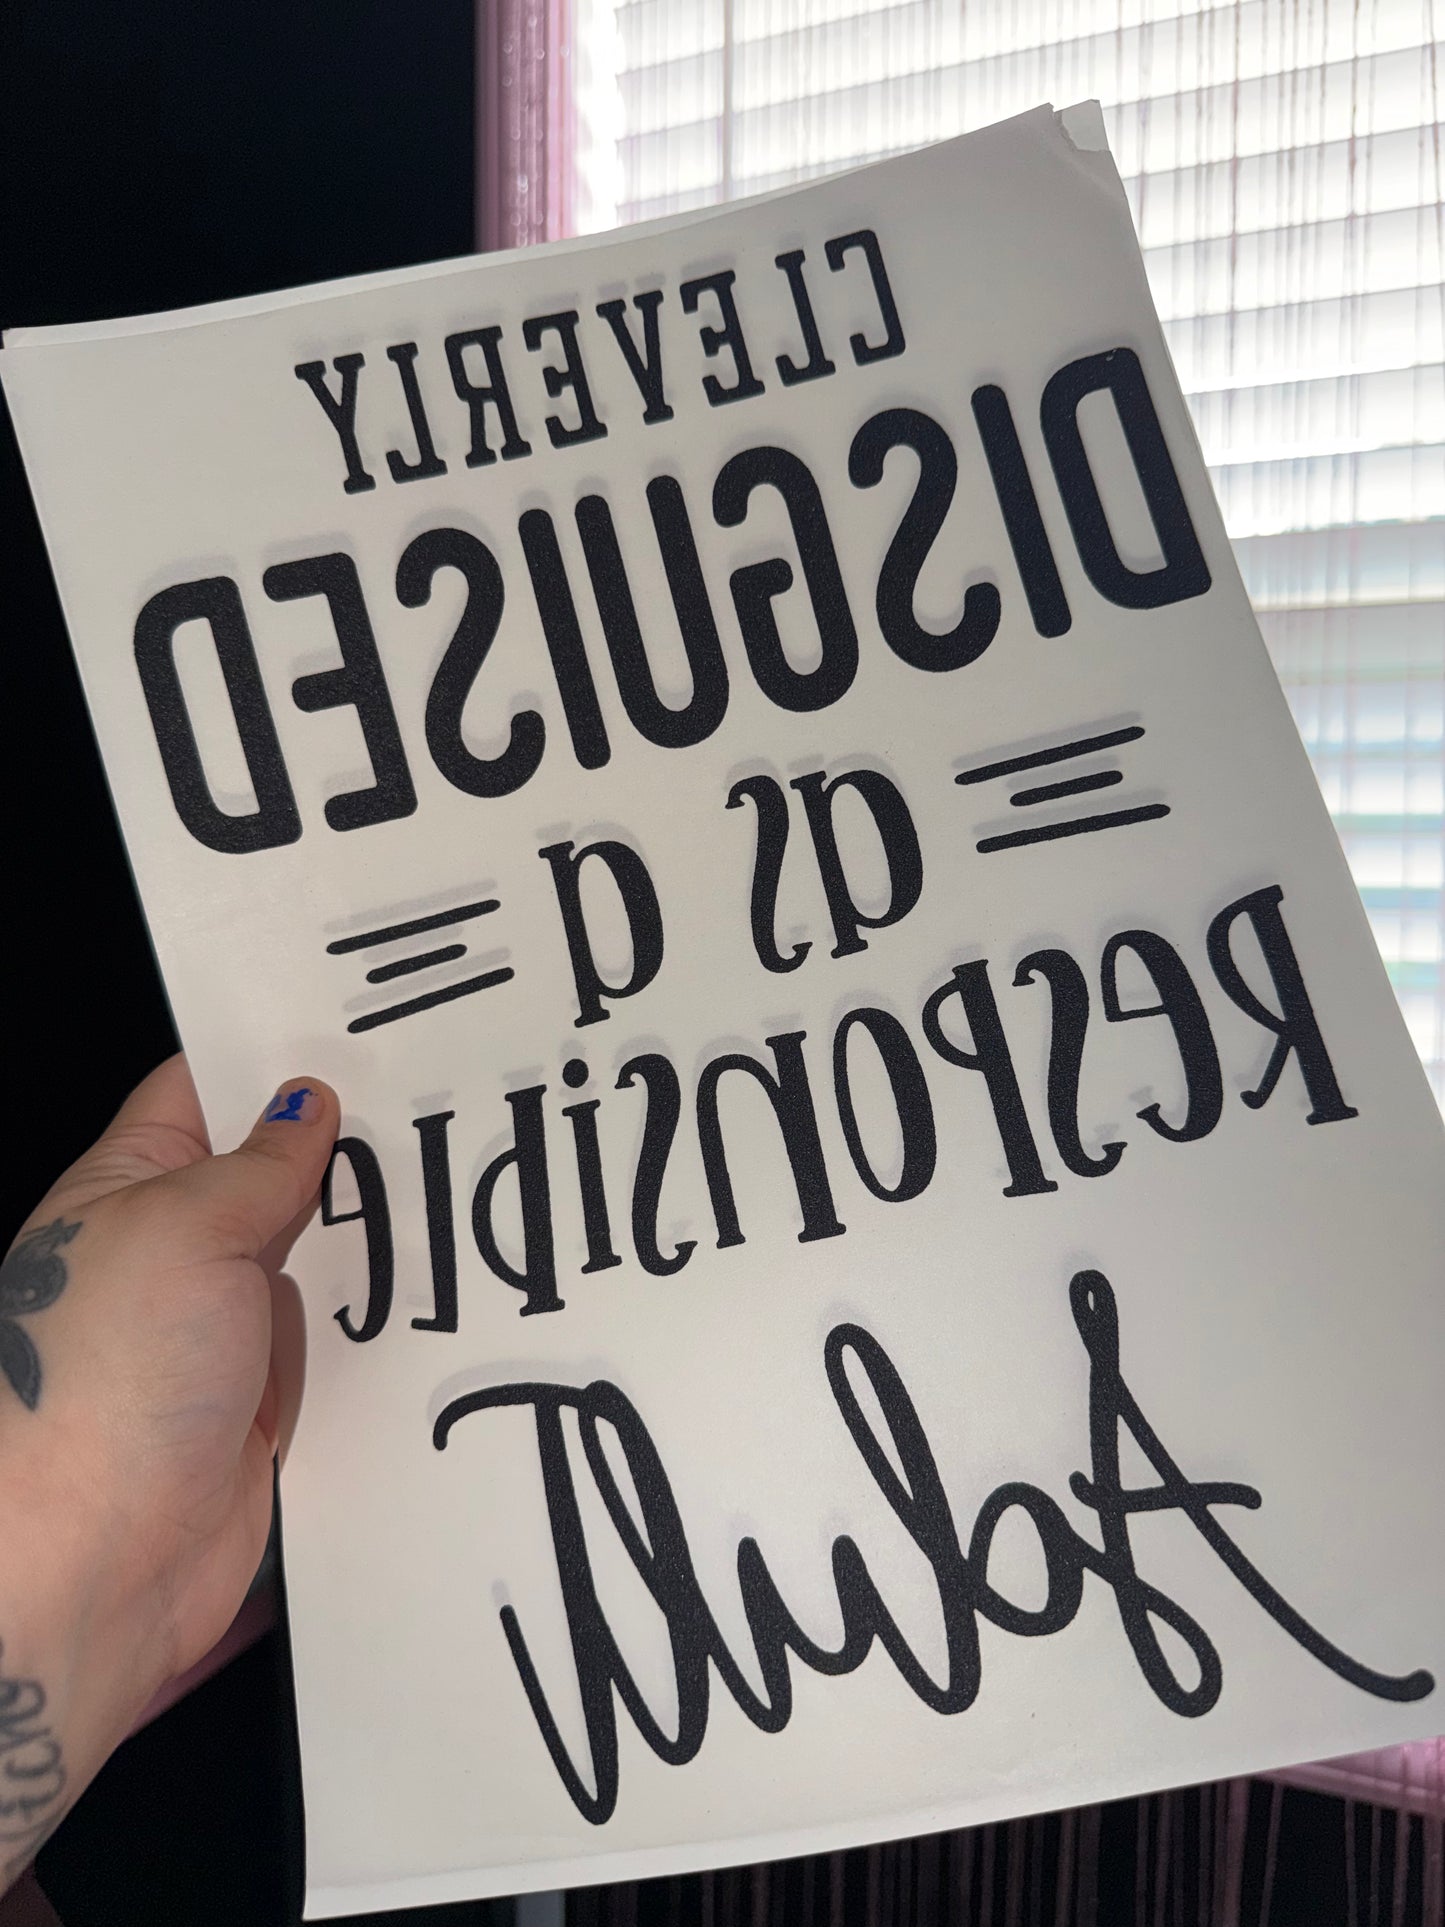 CLEVERLY
DISGUISED
as a
Responsible
Adult